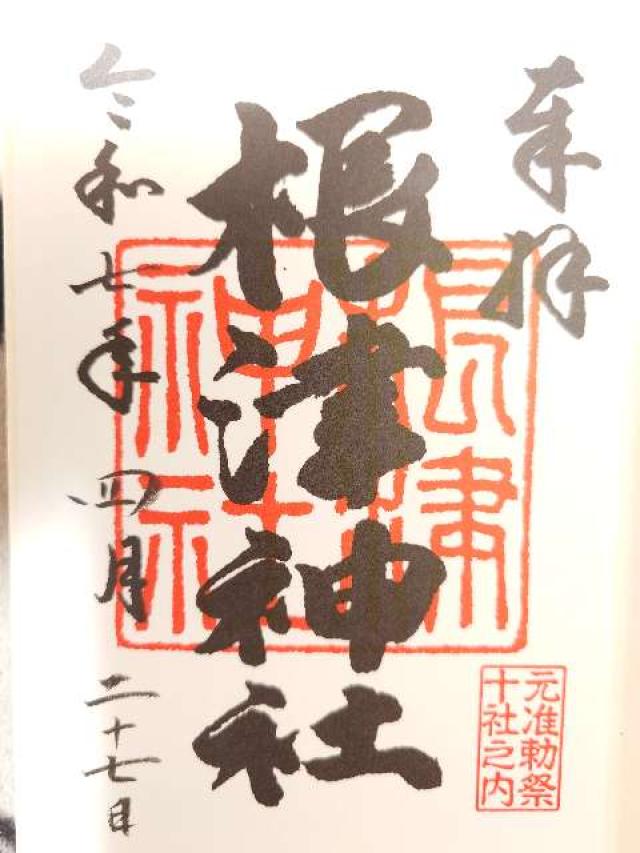 奉拝
根津神社
根津神社
元准勅祭
十社之内
令和七年四月二十七日